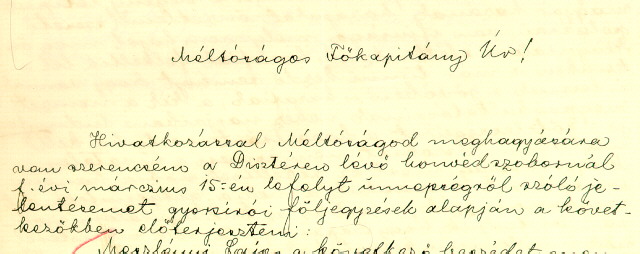 Méltóságos Főkapitány Úr!
Hivatkozással Méltóságod meghagyására
van szerencsém a Disztéren lévő honvédszobornál
f. évi márczius 15-én lefolyt ünnepségről szóló je-
lentésemet gyorsírói följegyzések alapján a követ-
kezőkben előterjeszteni:
a következő beszédet